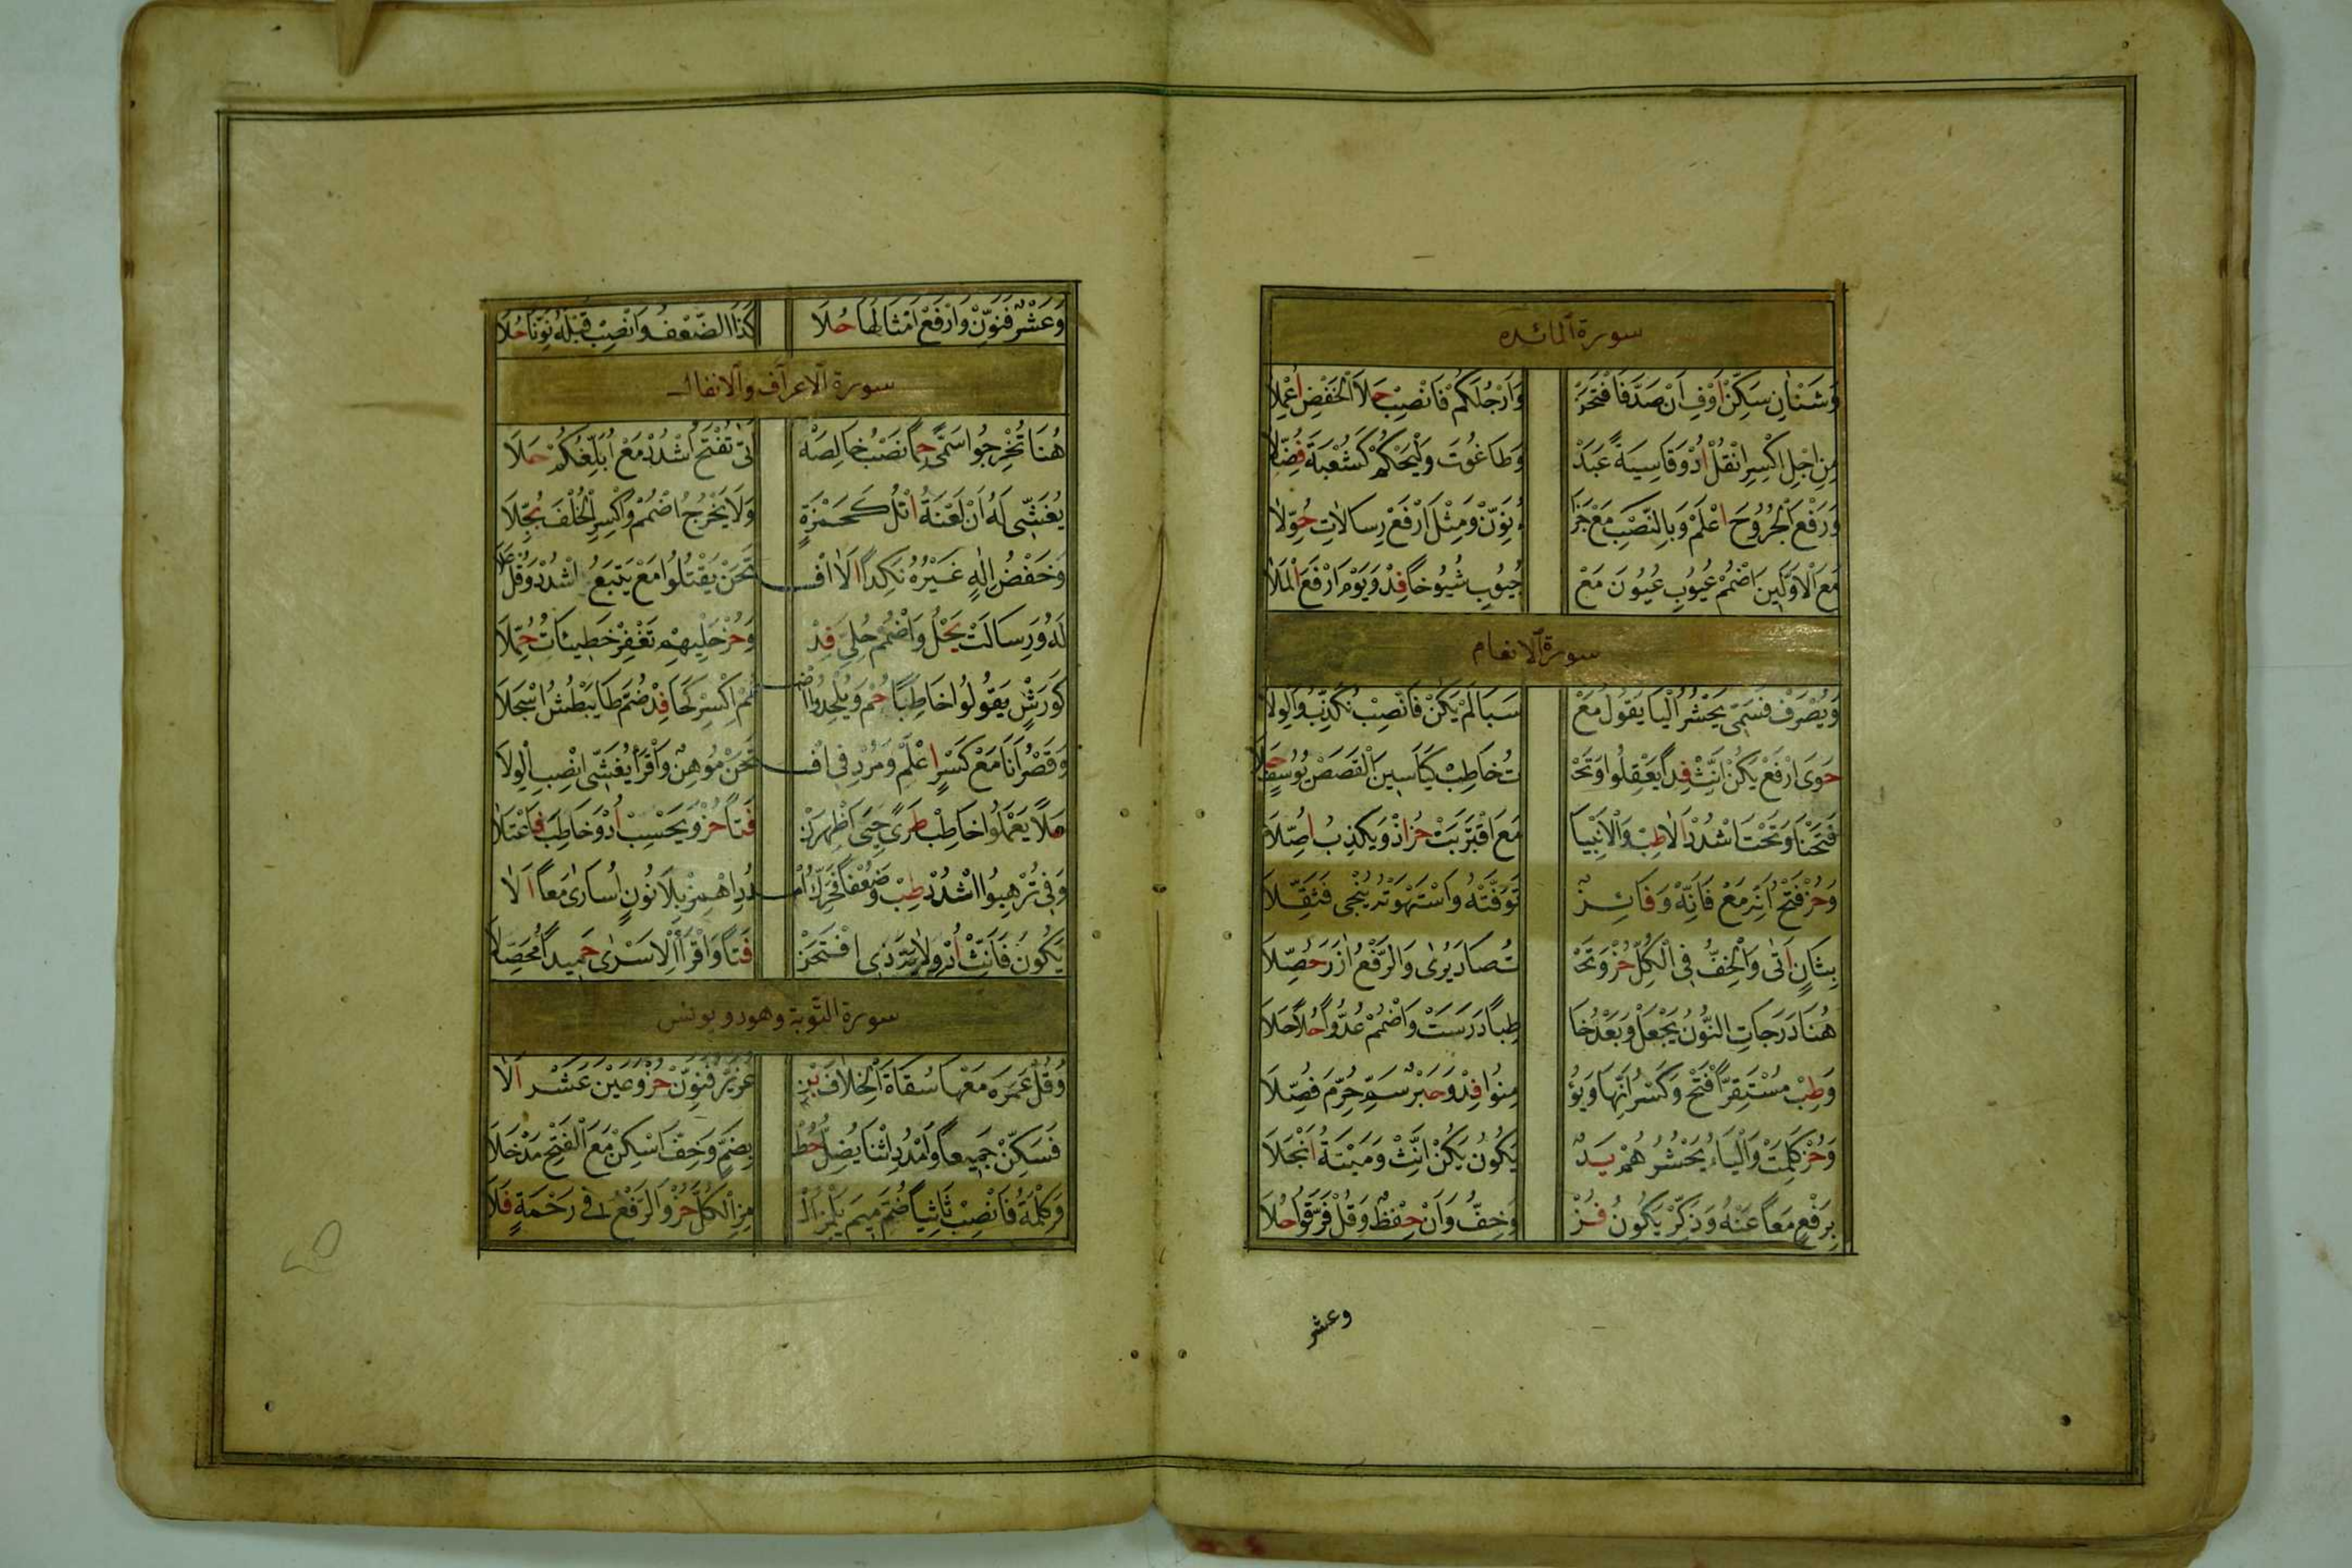 سورة المائده
وَشَنْاٰنِ سَكِّنْ اَوْفِ اَنْ صَدَّ فَافْتَحَنْ وَاَرْجُلَكُمْ فَانْصِبْ حَلَا الْخَفْضِ اُعْمِلَا
مِنِ اجْلِ اكْسِرِ انْقُلْ اُدْ وَقَاسِيَةً عَبَدْ وَطَاغُوتَ وَلْيَحْكُمْ كَشُعْبَةَ فُصِّلَا
وَرَفْعَ الْجُرُوحَ اعْلَمْ وَبِالنَّصْبِ مَعْ جَزَا ءُ نَوِّنْ وَمِثْلَ ارْفَعْ رِسالَاتِ حُوِّلَا
مَعَ الْاَوَّلِينَ اضْمُمْ عُيُوبِ عُيُونَ مَعْ جُيُوبِ شُيُوخًا فِدْ وَيَوْمَ ارْفَعِ الْمَلَا
سورة الانعام
وَيُصْرَفْ فَسَمِّى يَحْشُرُ الْيَا يَقُولُ مَعْ سَبَا لَمْ يَكُنْ فَانْصِبْ نُكَذِّبُ وَالْوِلَا
حَوَى ارْفَعْ يَكُنْ اَنِّثْ فِدًا يَعْقِلُوا وَتَحْ تُ خَاطِبْ كَيَاسِينَ الْقَصَصْ يُوسُفٍ حَلَا
فَتَحْنَا وَتَحْتَ اشْدُدْ اَلَا طِبْ وَالْاَنْبِيَا مَعَ اقْتَرَبَتْ حُزْ اذْ وَيَكْذِبُ اُصِّلَا
وَحُزْ فَتْحُ اَنَّهْ مَعْ فَاِنَّهْ وَفَائِزٌ تَوَفَّتْهُ وَاسْتَهْوَتْهُ يُنْجِى فَثَقِّلَا
بِثَانٍ اَتٰى وَالْخِفُّ فِى الْكُلِّ حُزْ وَتَحْ تَ صَادَ يُرٰى وَالرَّفْعُ اٰزَرَ حُصِّلَا
هُنَا دَرَجَاتِ النُّونُ يَجْعَلْ وَبَعْدُ خَا طِبًا دَرَسَتْ وَاضْمُمْ عُدُوًّا حُلًا حَلَا
وَطِبْ مُسْتَقِرًّا فَتْحُ وَكَسْرُ اَنَّهَا وَيُؤْ مِنُوا فِدْ وَحَبْرٌ سَمِّ حُرِّمَ فُصِّلَا
وَحُزْ كَلِمَتْ وَالْيَاءُ يَحْشُرُهُمْ يَدٌ يَكُونُ يَكُنْ اَنِّثْ وَمَيْتَةُ اَنْجَلَا
بِرَفْعٍ مَعًا عَنْهُ وَذَكِّرْ يَكُونَ فُزْ وَخِفُّ وَاَنْ حِفْظٌ وَقُلْ فَرَّقُوا حُلَا
وعشر
وَعَشْرٌ فَنَوِّنْ وَارْفَعْ اَمْثَالَهَا حُلَا كَذَا الضِّعْفُ وَانْصِبْ قَبْلَهُ نَوِّنًا حُلَا
سورة الاعراف والانفال
هُنَا تُخْرَجُوا سَمَّى حِمًا نَصْبُ خَالِصَهْ اَتَى تُفْتَحُ اشْدُدْ مَعْ اُبَلِّغُكُمْ حَلَا
يُغَشِّى لَهُ اَنْ لَعْنَةُ اتْلُ كَحَمْزَةٍ وَلَا يَخْرُجُ اضْمُمْ وَاكْسِرِ الْخُلْفَ بُجِّلَا
وَخَفْضُ اِلٰهٍ غَيْرُهُ نَكِدًا اَلَا افْ تَحَنْ يَقْتُلُوا مَعْ يَتْبَعُ اشْدُدْ وَقُلْ عَلَا
لَهُ وَرِسَالَتْ يَحْلُ وَاضْمُمْ حُلِىِّ فِدْ وَحُزْ حَلْيِهِمْ تَغْفِرْ خَطِيئَاتُ حُمِّلَا
كَوَرْشٍ يَقُولُوا خَاطِبًا حُمْ وَيُلْحِدُوا اضْ مُمْ اكْسِرْ كَحَا فِدْ ضُمَّ طَا يَبْطُشُ اسْجَلَا
وَقَصْرُ اَنَا مَعْ كَسْرٍ اعْلَمْ وَمُرْدِفِى افْ تَحَنْ مُوهِنٌ وَاقْرَأْ يُغَشِّى انْصِبِ الْوِلَا
حَلَا يَعْمَلُوا خَاطِبْ طَرًى حَيِىَ اَظْهِرَنْ فَتًا حُزْ وَيَحْسِبْ اُدْ وَخَاطِبَ فَاعْتَلَا
وَفِى تُرْهِبُوا اشْدُدْ طِبْ وَضُعْفًا فَحَرِّكِ امْ دُدِ اهْمِزْ بِلَا نُونٍ اُسَارٰى مَعًا اَلَا
يَكُونَ فَاَنِّثْ اُدْ وِلَايَةَ ذِى افْتَحَنْ فَتًا وَاقْرَاِ الْاَسْرٰى حَمِيدًا مُحَصِّلَا
سورة التوبة وهود ويونس
وَقُلْ عَمَرَهْ مَعْهَا سُقَاةَ الْخِلَافُ بِنْ عُزَيْرٌ فَنَوِّنْ حُزْ وَعَيْنَ عَشَرْ اَلَا
فَسَكِّنْ جَمِيعًا وَامْدُدِ اثْنَا يُضِلُّ حُطْ بِضَمٍّ وَخِفَّ اسْكِنْ مَعَ الْفَتْحِ مَدْخَلَا
وَكِلْمَةُ فَانْصِبْ ثَانِيًا ضُمَّ مِيمَ يَلْمِزُ الْ مِزِ الْكُلَّ حُزْ وَالرَّفْعُ فِى رَحْمَةٍ فَلَا